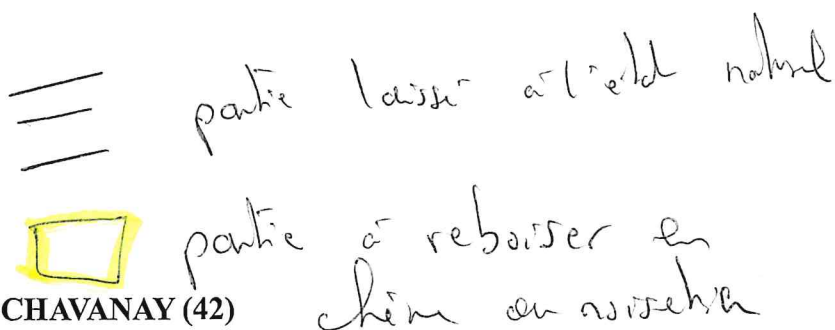 partie laissé à l'état naturel
partie à reboiser en
chêne ou noisetier
CHAVANAY (42)